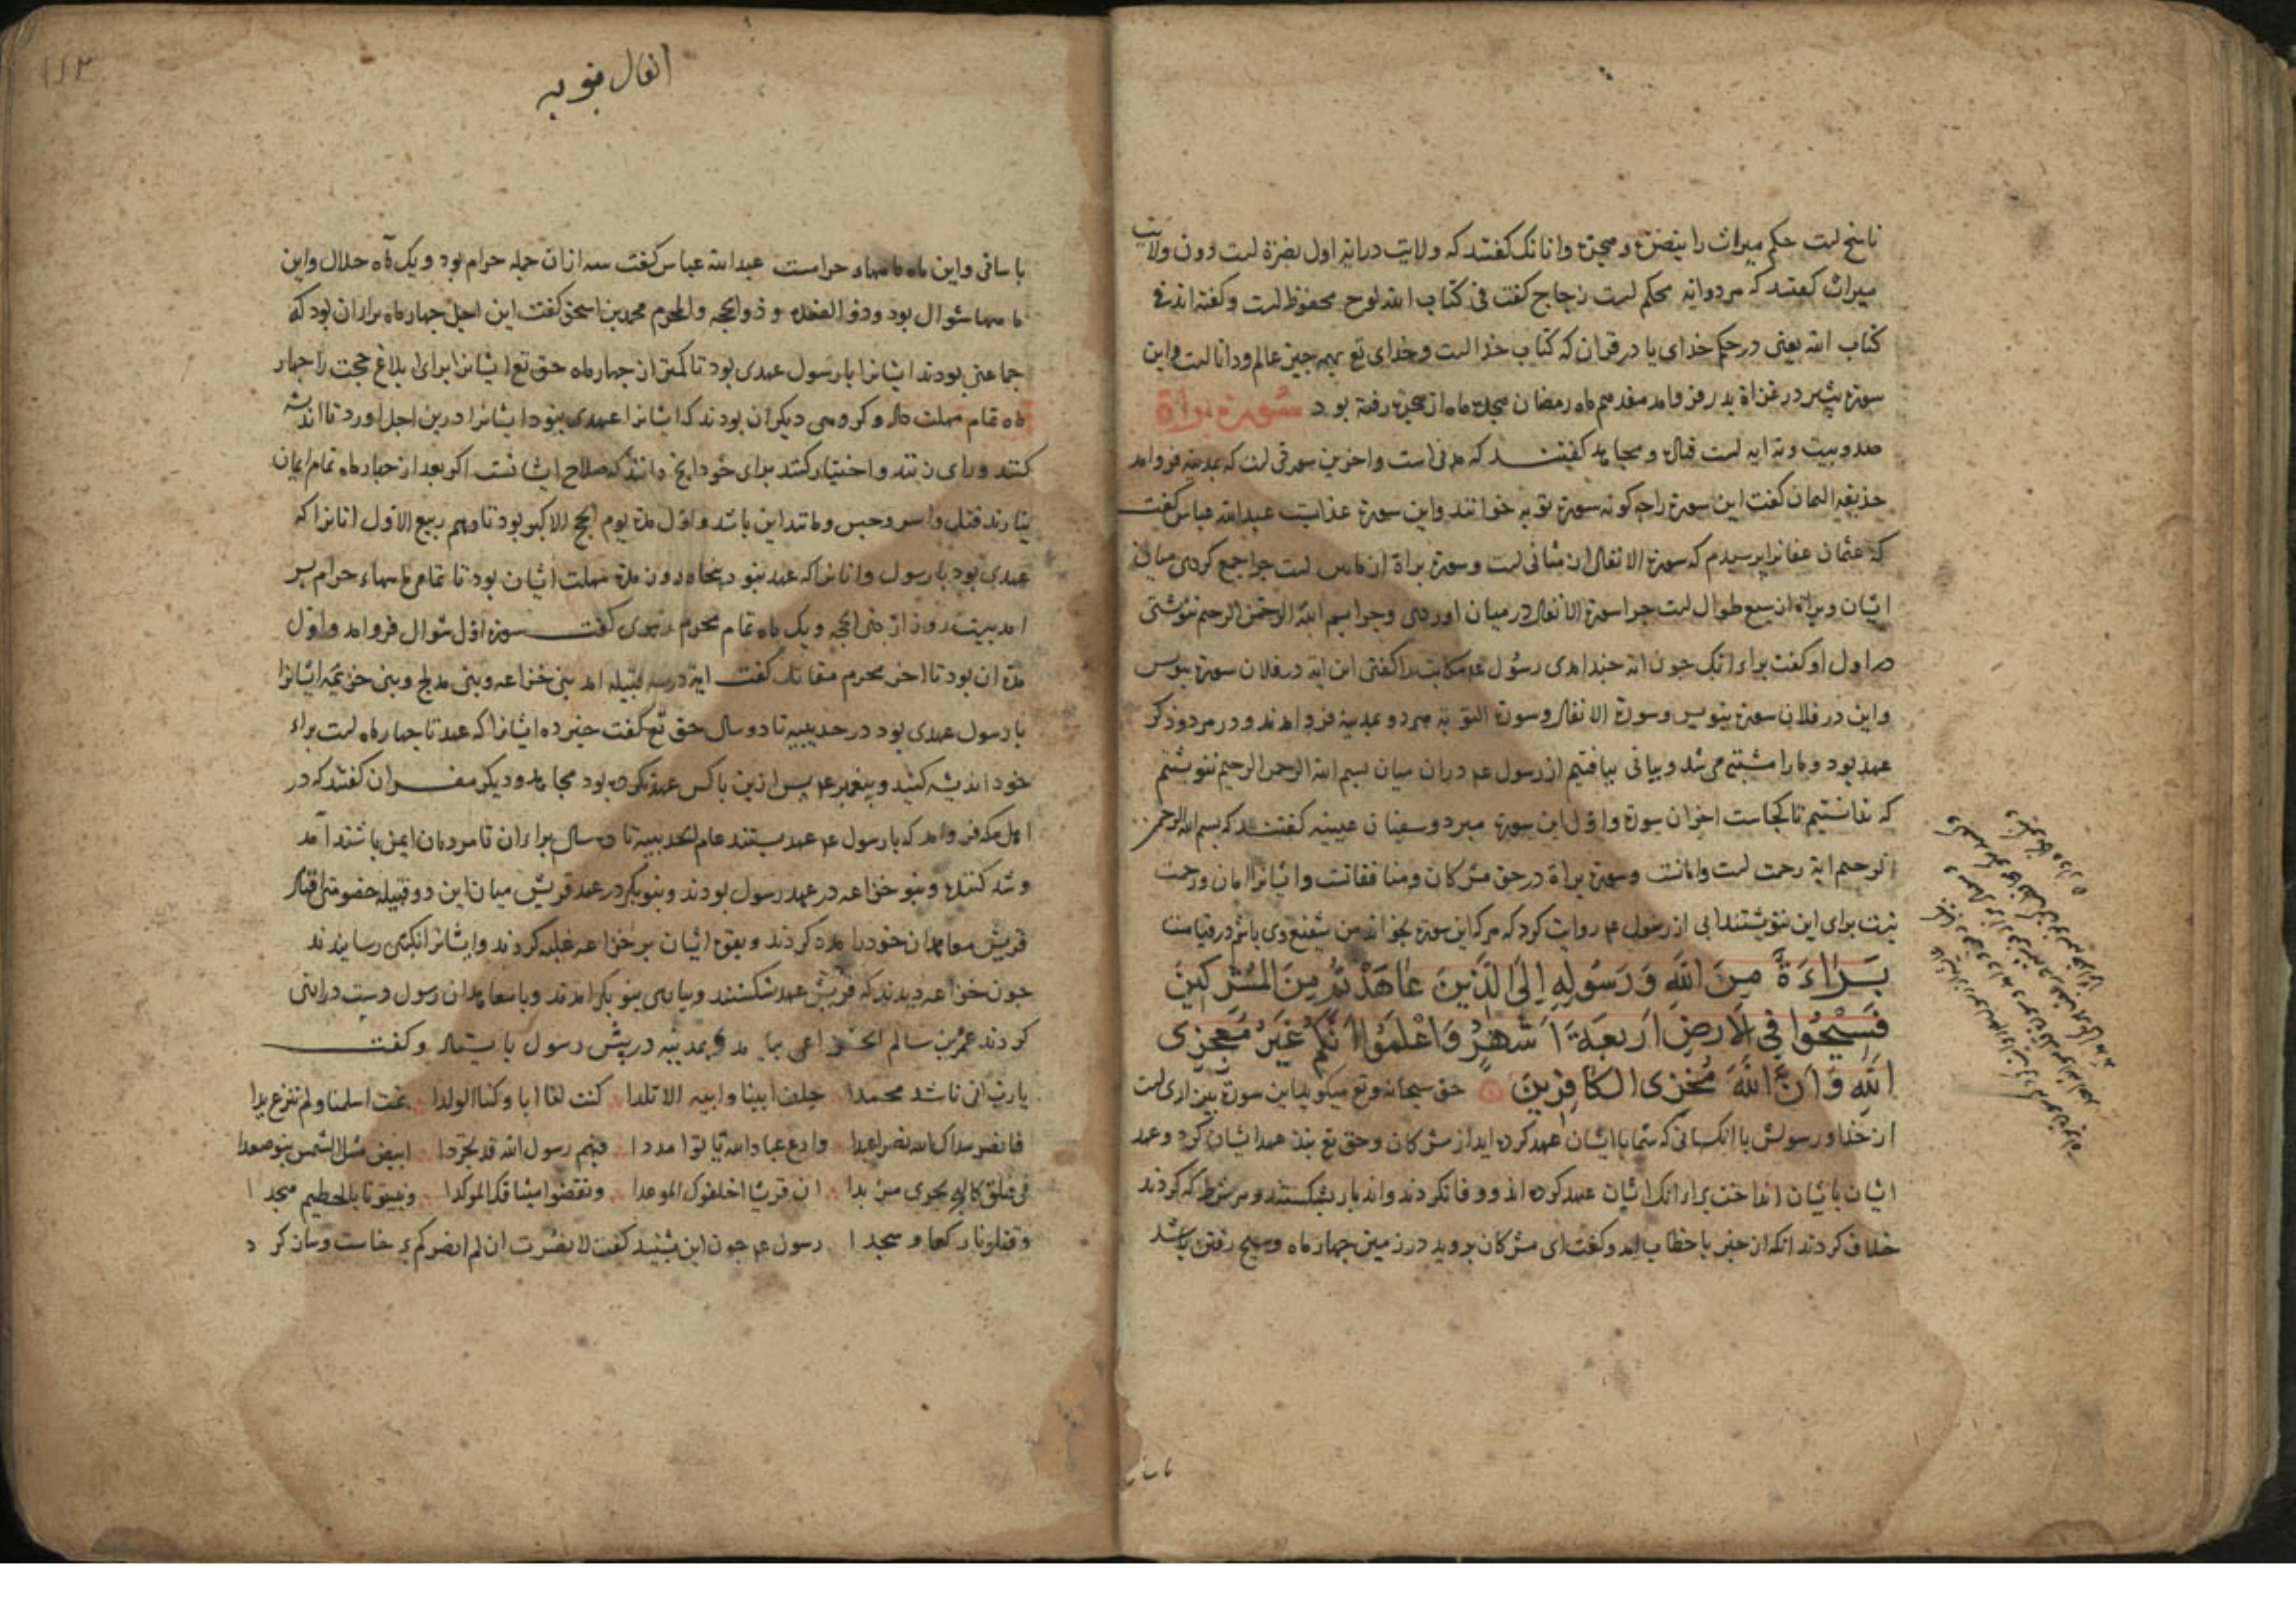 ناسخ است حکم میراث را بنصرة و هجرة و انانک گفتند که ولایت در ایة اول نصرة است دون ولایت
میراث گفتند که هر دو ایه محکم است زجاج گفت فی کتاب الله لوح محفوظ است و گفته اند فی
کتاب الله یعنی در حکم خدای یا در قران که کتاب خدا است و خدای تع بهمه چیز عالم و دانا است و این
سورة پیشتر در غزاة بدر فرو امد هفدهم ماه رمضان هجده ماه از هجرة رفته بود سورة براة
صد و بیست و نه ایه است قتاده و مجاهد گفتند که مدنی است و اخرین سورتی است که بمدینه فرو امد
حذیفه الیمان گفت این سورة را چه گونه سورة توبه خوانند و این سورة عذابست عبدالله عباس گفت
که عثمان عفانرا پرسیدم که سورة الانفال از مثانی است و سورة براة از است چرا جمع کردی میان
ایشان و براة از سبع طوال است چرا سورة الانفال در میان اوردی و چرا بسم الله الرحمن الرحیم ننوشتی
در اول او گفت برای انک چون ایة چند امدی رسول عم کاتب را گفتی این ایة در فلان سورة بنویس
و این در فلان سورة بنویس و سورة الانفال و سورة التوبه هر دو بمدینه فرو امدند و در هر دو ذکر
عهد بود و ما را مشتبه می شد و بیانی نیافتیم از رسول عم در ان میان بسم الله الرحمن الرحیم ننوشتیم
که ندانستیم تا کجاست اخر ان سورة و اول این سورة مبرد و سفیان عیینه گفتند که بسم الله الرحمن
الرحیم ایة رحمت است و امانست و سورة براة در حق مشرکان و منافقانست و ایشانرا امان و رحمت
نیست برای این ننوشتند ابی از رسول عم روایت کرد که هر که این سورة بخواند من شفیع وی باشم در قیامت
بَرَاءَةٌ مِنَ اللَّهِ وَرَسُولِهِ إِلَى الَّذِينَ عَاهَدْتُمْ مِنَ الْمُشْرِكِينَ
فَسِيحُوا فِي الْأَرْضِ أَرْبَعَةَ أَشْهُرٍ وَاعْلَمُوا أَنَّكُمْ غَيْرُ مُعْجِزِي
اللَّهِ وَأَنَّ اللَّهَ مُخْزِي الْكَافِرِينَ حق سبحانه و تع میکوید این سورة بیزاری است
از خدا و رسولش با انکسانی که شما با ایشان عهد کرده اید از مشرکان و حق تع نبذ عهد ایشان کرد و عهد
ایشان با ایشان انداخت برای انک ایشان عهد کرده اند و وفا نکردند و اند بار بشکستند و هر شرط که کردند
خلاف کردند انکه از خبر با خطاب امد و گفت ای مشرکان بروید در زمین چهار ماه و سیح رفتن باشد
انفال توبه
۱۱۳
باسانی و این ماه ماهها حرامست عبدالله عباس گفت سه از ان جمله حرام بود و یک ماه حلال و این
ماهها شوال بود و ذو القعده و ذو الحجه و المحرم محمد بن اسحق گفت این اجل چهار ماه برای ان بود که
جماعتی بودند ایشانرا با رسول عهدی بود تا کمتر از چهار ماه حق تع ایشانرا برای ابلاغ حجت را چهار
ماه تمام مهلت داد و گروهی دیگر ان بودند که ایشانرا عهدی نبود ایشانرا درین اجل اورد تا اندیشه
کنند و رای زنند و اختیار کنند برای خود انچ دانند که صلاح ایشانست اگر بعد از چهار ماه تمام ایمان
نیارند قتل و اسر و حبس و مانند این باشد و اول مدة یوم الحج الاکبر بود تا دهم ربیع الاول انانرا که
عهدی بود با رسول و انانرا که عهد نبود پنجاه روز مدة مهلت ایشان بود تا تمام ماهها حرام پس
امد بیست روز از ذی الحجه و یک ماه تمام محرم زهری گفت سورة اول شوال فرو امد و اول
مدة ان بود تا اخر محرم مقاتل گفت ایة در سه قبیله امد بنی خزاعه و بنی مدلج و بنی خزیمه ایشانرا
با رسول عهدی بود در حدیبیه تا دو سال حق تع گفت خبر ده ایشانرا که عهد تا چهار ماه است برای
خود اندیشه کنید و پیغمبر عم پس ازین با کس عهد نکرده بود مجاهد و دیگر مفسران گفتند که در
اهل مکه فرو امد که با رسول عم عهد بستند عام الحدیبیه تا ده سال برای ان تا مردمان ایمن باشند امد
و شد کنند و بنو خزاعه در عهد رسول بودند و بنو بکر در عهد قریش میان این دو قبیله خصومتی افتاد
قریش معاهدان خود را مدد کردند و بقوة ایشان بر خزاعه غلبه کردند و ایشانرا نکبتی رسانیدند
چون خزاعه دیدند که قریش عهد شکستند و بیاری بنو بکر امدند و با معاهدان رسول دست درازی
کردند عمر بن سالم الخزاعی بیامد و بمدینه در پیش رسول بایستاد و گفت
یا رب انی ناشد محمدا حلف ابینا و ابیه الاتلدا کنت لنا ابا و کنا الولدا ثمت اسلمنا و لم ننزع یدا
فانصر هداک الله نصرا عبدا و ادع عباد الله یاتوا مددا فیهم رسول الله قد تجردا ابیض مثل الشمس ینمو صعدا
فی فیلق کالبحر یجری مزبدا ان قریشا اخلفوک الموعدا و نقضوا میثاقک الموکدا و بیتونا بالحطیم هجدا
و قتلونا رکعا و سجدا رسول عم چون این بشنید گفت لا نصرت ان لم انصرکم برخاست و ساز کرد